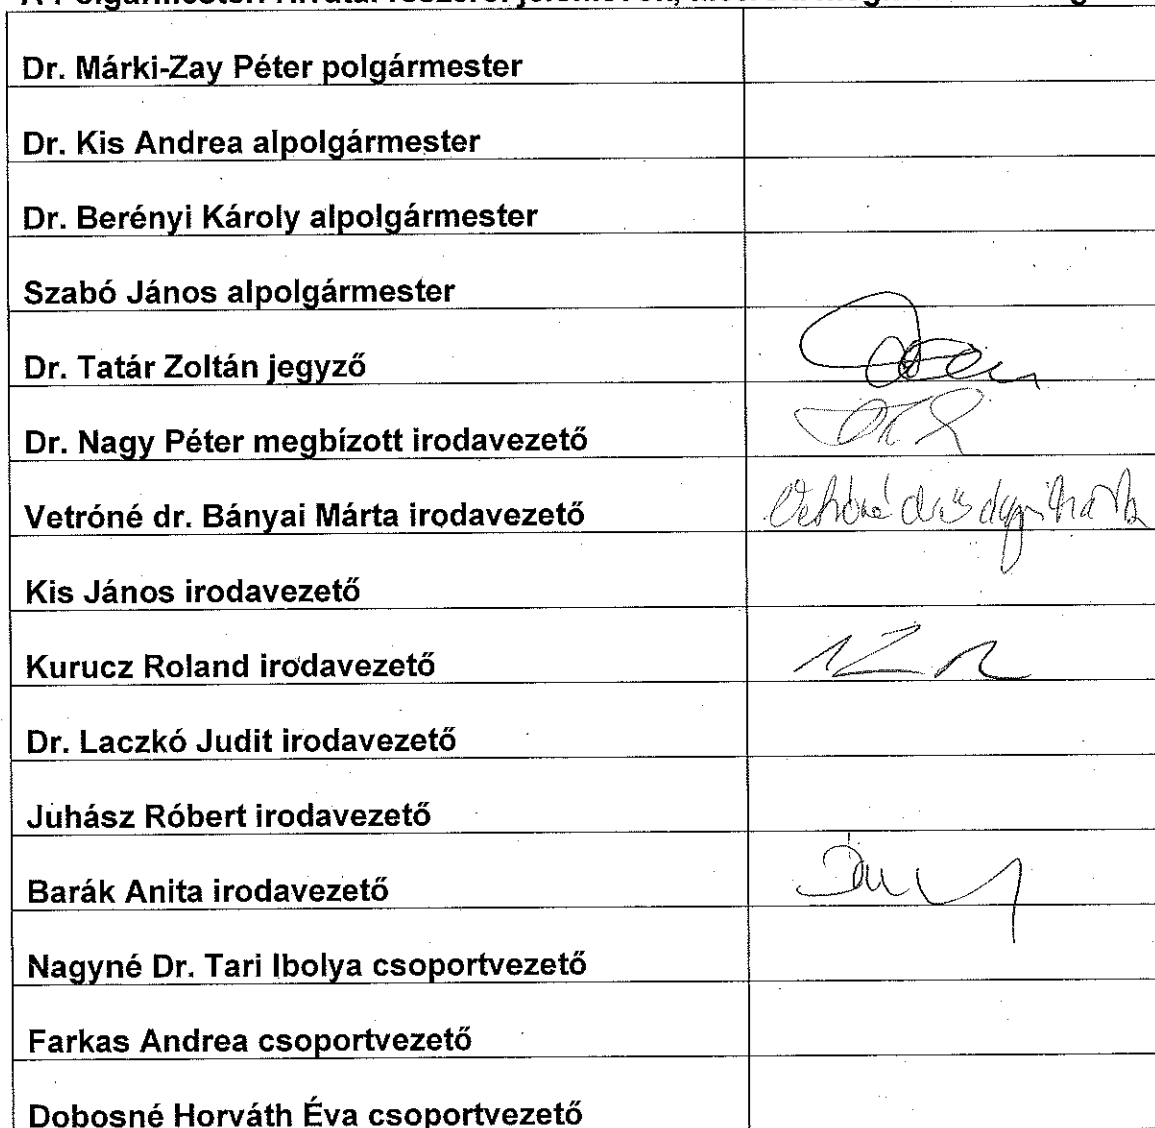 Dr. Márki-Zay Péter polgármester
Dr. Kis Andrea alpolgármester
Dr. Berényi Károly alpolgármester
Szabó János alpolgármester
Dr. Tatár Zoltán jegyző
Dr. Nagy Péter megbízott irodavezető
Vetróné dr. Bányai Márta irodavezető
Kis János irodavezető
Kurucz Roland irodavezető
Dr. Laczkó Judit irodavezető
Juhász Róbert irodavezető
Barák Anita irodavezető
Nagyné Dr. Tari Ibolya csoportvezető
Farkas Andrea csoportvezető
Dobosné Horváth Éva csoportvezető